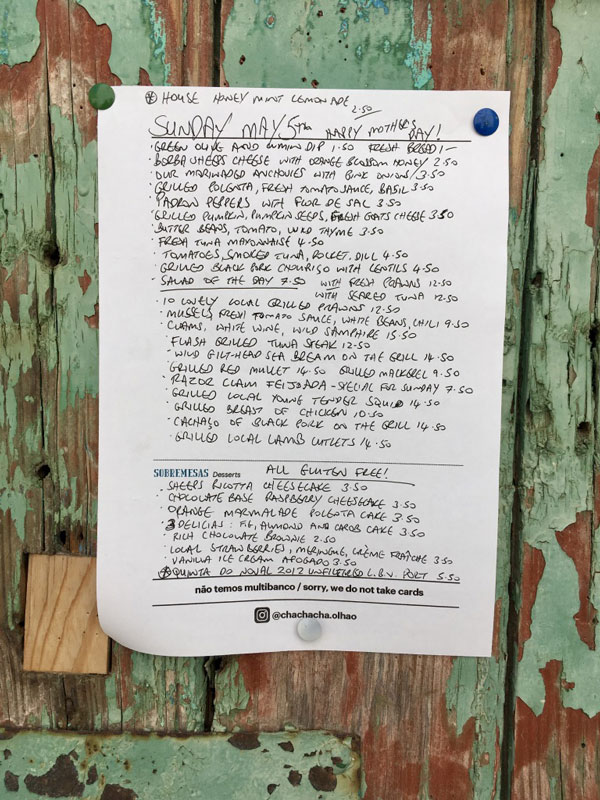 ⊛ HOUSE HONEY MINT LEMONADE 2.50
SUNDAY MAY 5TH HAPPY MOTHERS DAY!
· GREEN OLIVE AND CUMIN DIP 1.50 FRESH BREAD 1-
· BORBA SHEEPS CHEESE WITH ORANGE BLOSSOM HONEY 2.50
· OUR MARINADED ANCHOVIES WITH PINK ONIONS 3.50
· GRILLED POLENTA, FRESH TOMATO SAUCE, BASIL 3.50
· PADRON PEPPERS WITH FLOR DE SAL 3.50
· GRILLED PUMPKIN, PUMPKIN SEEDS, FRESH GOATS CHEESE 3.50
· BUTTER BEANS, TOMATO, WILD THYME 3.50
· FRESH TUNA MAYONNAISE 4.50
· TOMATOES, SMOKED TUNA, ROCKET, DILL 4.50
· GRILLED BLACK PORK CHOURIÇO WITH LENTILS 4.50
· SALAD OF THE DAY 7.50 WITH FRESH PRAWNS 12.50
WITH SEARED TUNA 12.50
· 10 LOVELY LOCAL GRILLED PRAWNS 12.50
· MUSSELS FRESH TOMATO SAUCE, WHITE BEANS, CHILI 9.50
· CLAMS, WHITE WINE, WILD SAMPHIRE 15.50
· FLASH GRILLED TUNA STEAK 12.50
· WILD GILT-HEAD SEA BREAM ON THE GRILL 14.50
· GRILLED RED MULLET 14.50 GRILLED MACKEREL 9.50
· RAZOR CLAM FEIJOADA - SPECIAL FOR SUNDAY 7.50
· GRILLED LOCAL YOUNG TENDER SQUID 14.50
· GRILLED BREAST OF CHICKEN 10.50
· CACHAÇO OF BLACK PORK ON THE GRILL 14.50
· GRILLED LOCAL LAMB CUTLETS 14.50
SOBREMESAS Desserts ALL GLUTEN FREE!
· SHEEPS RICOTTA CHEESECAKE 3.50
· CHOCOLATE BASE RASPBERRY CHEESECAKE 3.50
· ORANGE MARMALADE POLENTA CAKE 3.50
· 3 DELICIAS: FIG, ALMOND AND CAROB CAKE 3.50
· RICH CHOCOLATE BROWNIE 2.50
· LOCAL STRAWBERRIES, MERINGUE, CRÈME FRAÎCHE 3.50
· VANILLA ICE CREAM AFOGADO 3.50
⊛ QUINTA DO NOVAL 2012 UNFILTERED L.B.V. PORT 5.50
não temos multibanco / sorry, we do not take cards
@chachacha.olhao